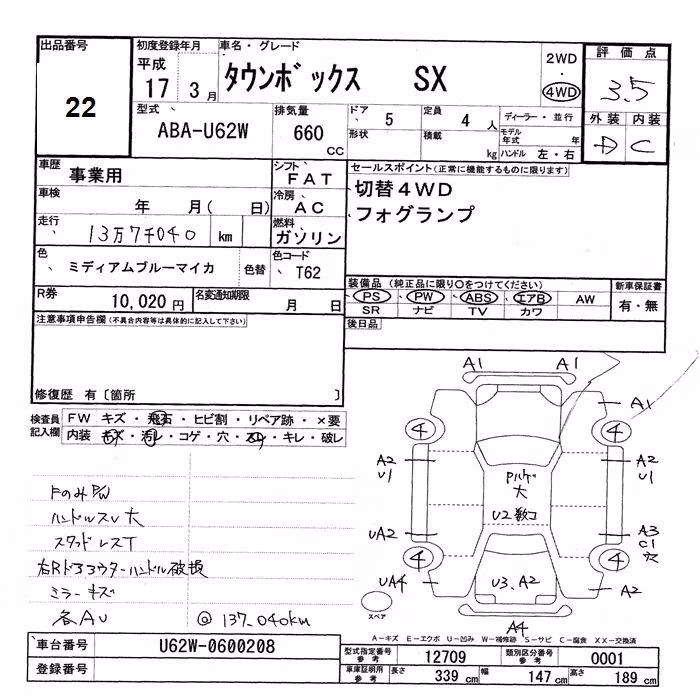 出品番号
22
初度登録年月
平成
17 3月
車名・グレード
タウンボックス SX
2WD
・
4WD
評価点
3.5
外装 内装
D C
型式
ABA-U62W
排気量
660 CC
ドア
5
定員
4 人
形状
積載
kg
ディーラー・並行
モデル年式 年
ハンドル 左・右
車歴
事業用
シフト
FAT
車検
年 月( 日)
冷房
AC
走行
13万7千040 km
燃料
ガソリン
色
ミディアムブルーマイカ
色替
色コード
T62
R券
10,020円
名変通知期限
月 日
セールスポイント(正常に機能するものに限ります)
切替4WD
フォグランプ
装備品(純正品に限り○をつけてください)
PS PW ABS エアB AW
SR ナビ TV カワ
新車保証書
有・無
後日品
注意事項申告欄(不具合内容等は具体的に記入して下さい)
修復歴 有〔箇所 〕
検査員記入欄
FW キズ・飛石・ヒビ割・リペア跡・×要
内装 キズ・汚レ・コゲ・穴・スレ・キレ・破レ
FのみP/W
ハンドルスレ大
スタッドレスT
右Rドアアウターハンドル破損
ミラーキズ
各AU
@ 137,040km
A1 A1
A1
4 4
A2 A2
U1 U1
大
U2数コ
UA2
A3
C1
穴
4 4
UA4
U3、A2
A2
スペア
A4
A-キズ E-エクボ U-凹み W-補修跡 S-サビ C-腐食 XX-交換済
車台番号
U62W-0600208
登録番号
型式指定番号
参考
12709
類別区分番号
参考
0001
車庫証明用
参考
長さ
339 cm
幅
147 cm
高さ
189 cm